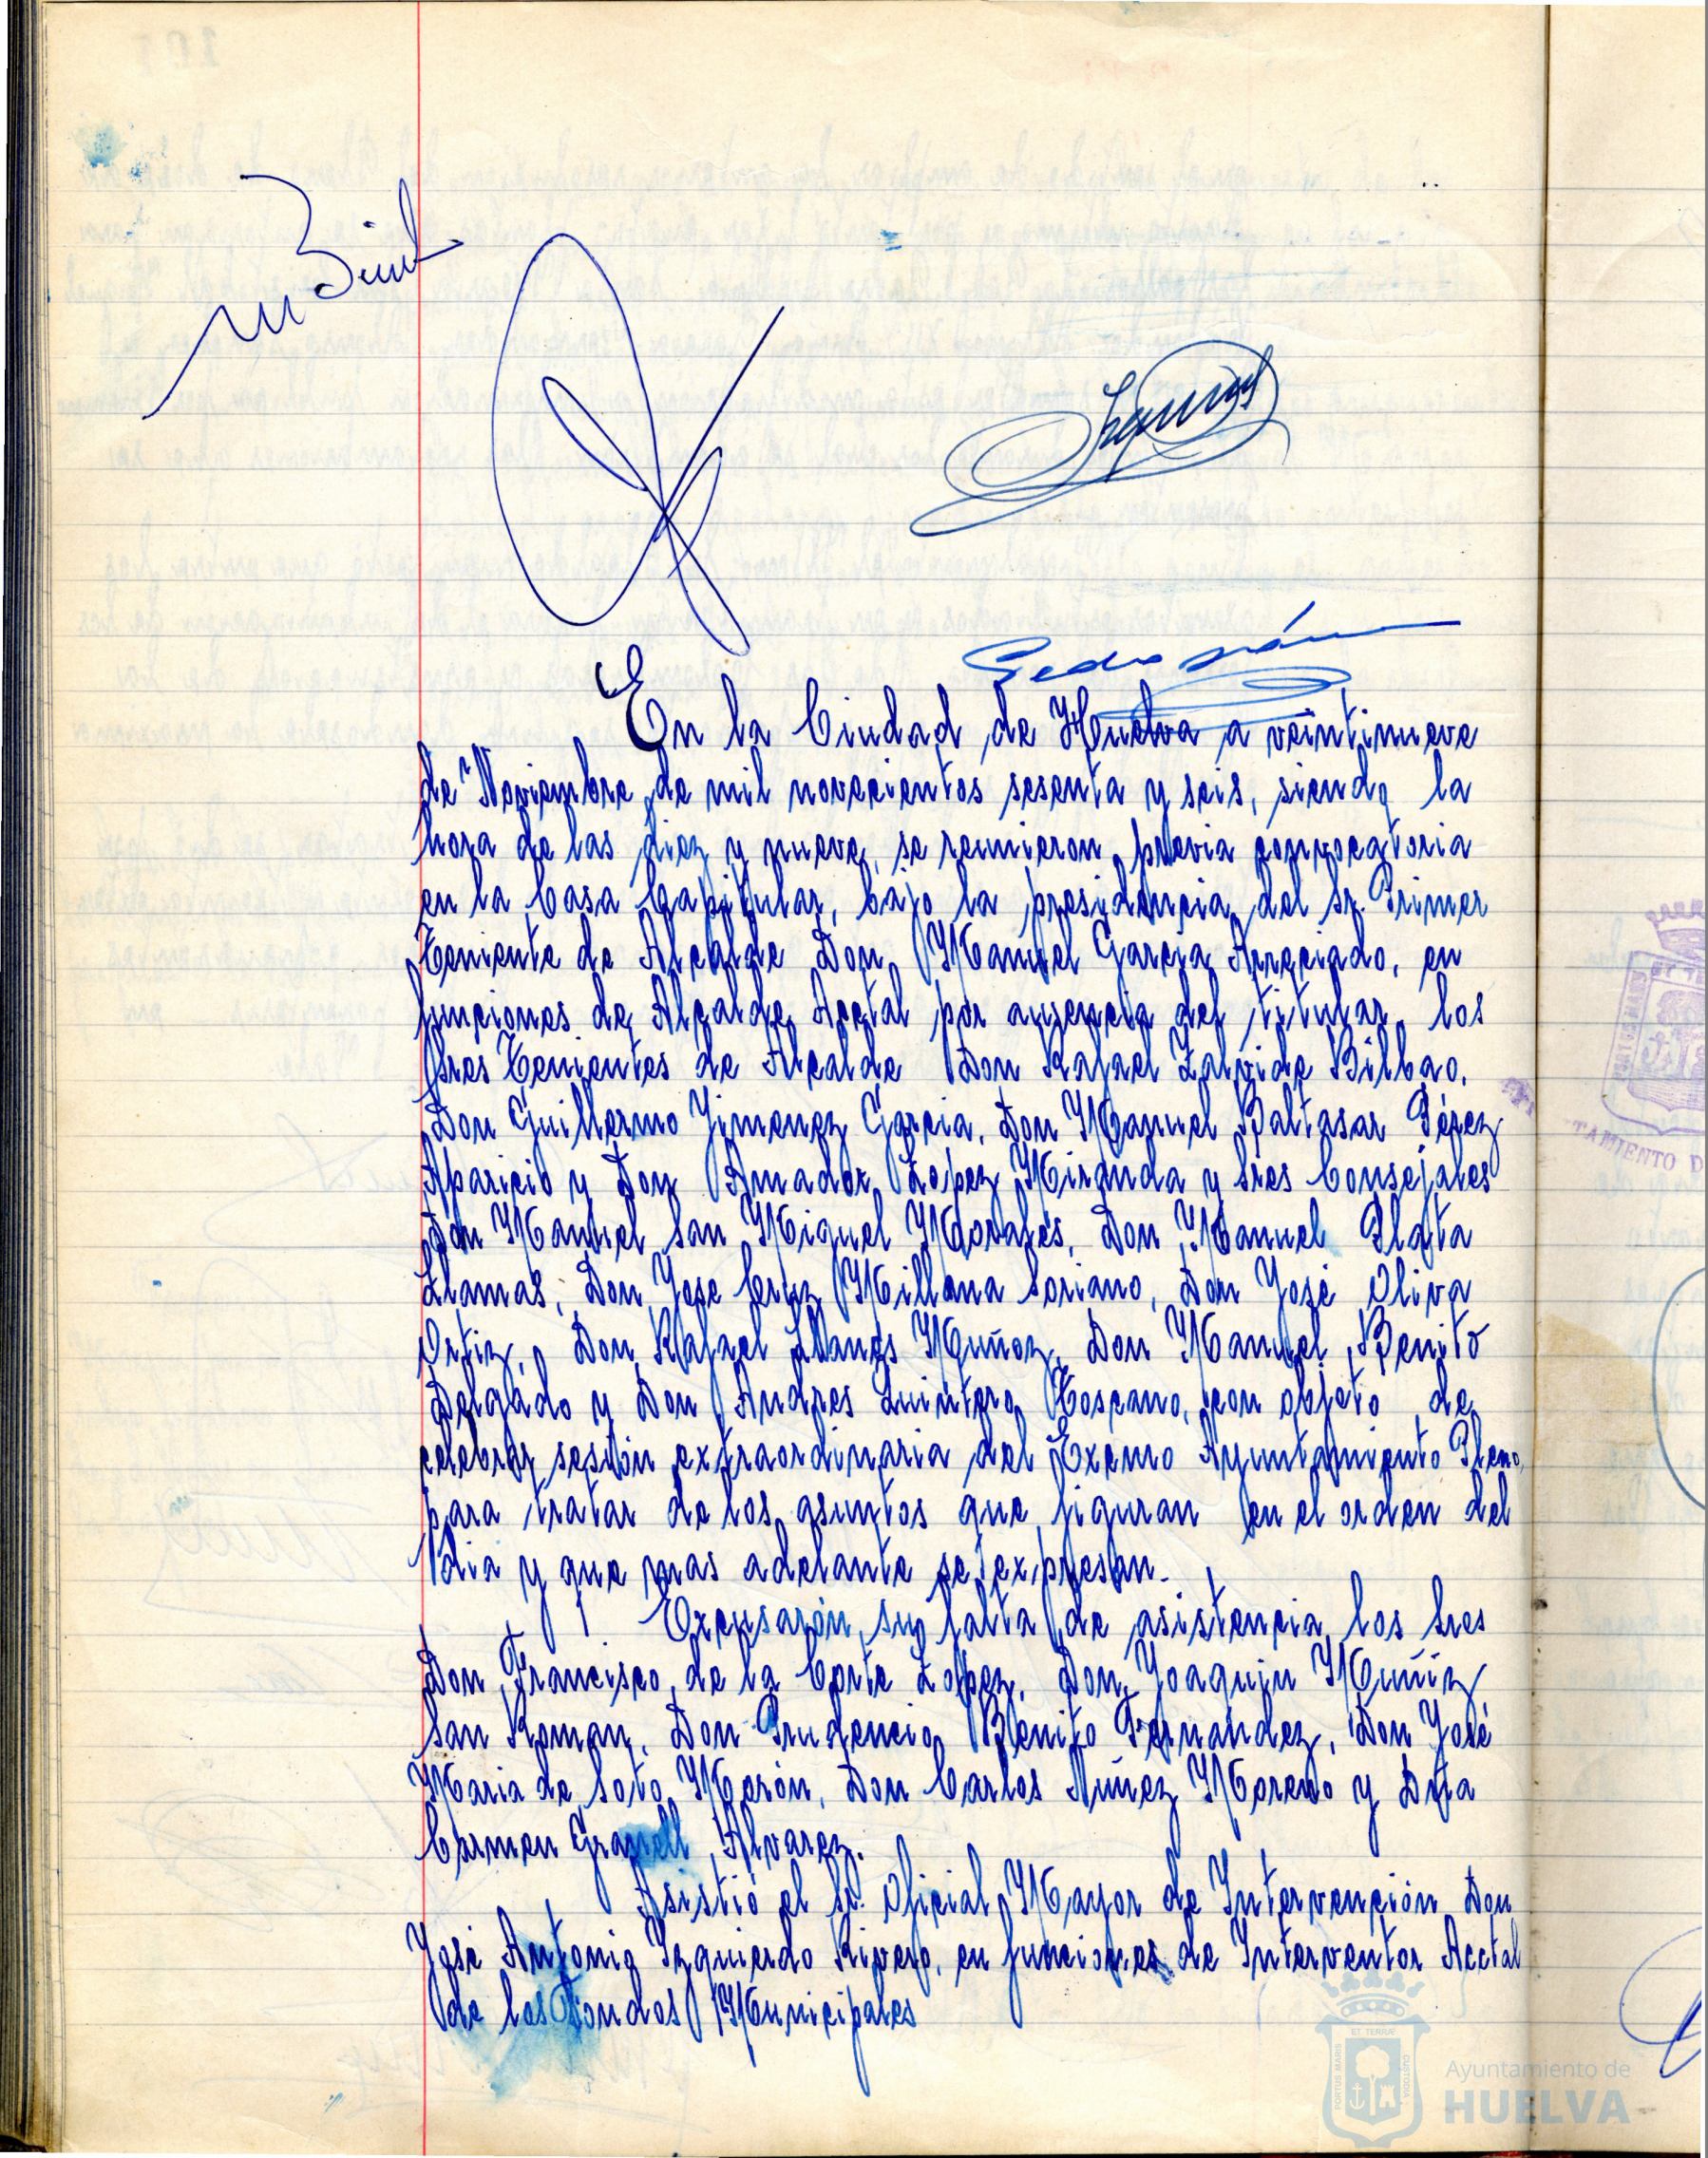 En la Ciudad de Huelva a veintinueve
de Noviembre de mil novecientos sesenta y seis, siendo la
hora de las diez y nueve, se reunieron previa convocatoria
en la Casa Capitular, bajo la presidencia del Sr. Primer
Teniente de Alcalde Don Manuel Garcia Arreciado, en
funciones de Alcalde Acctal por ausencia del titular, los
Sres Tenientes de Alcalde Don Rafael Zalvide Bilbao,
Don Guillermo Jimenez Garcia, Don Manuel Baltasar Pérez
Aparicio y Don Amador Lopez Miranda y Sres Consejales
Don Manuel San Miguel Morales, Don Manuel Plata
Llamas, Don Jose Cruz Millana Soriano, Don José Oliva
Ortiz, Don Rafael Llanes Muñoz, Don Manuel Benito
Delgado y Don Andres Quintero Toscano, con objeto de
celebrar sesión extraordinaria del Excmo Ayuntamiento Pleno,
para tratar de los asuntos que figuran en el orden del
dia y que mas adelante se expresan.
Excusarón su falta de asistencia los Sres
Don Francisco de la Corte Lopez, Don Joaquin Muñiz
San Roman, Don Prudencio Benito Fernandez, Don José
Maria de Soto Morón, Don Carlos Nuñez Moreno y Dña
Carmen Granell Alvarez.
Asistió el Sr. Oficial Mayor de Intervención Don
José Antonio Izquierdo Rivero, en funciones de Interventor Acctal
de los Fondos Municipales
TAMIENTO D
Ayuntamiento de
HUELVA